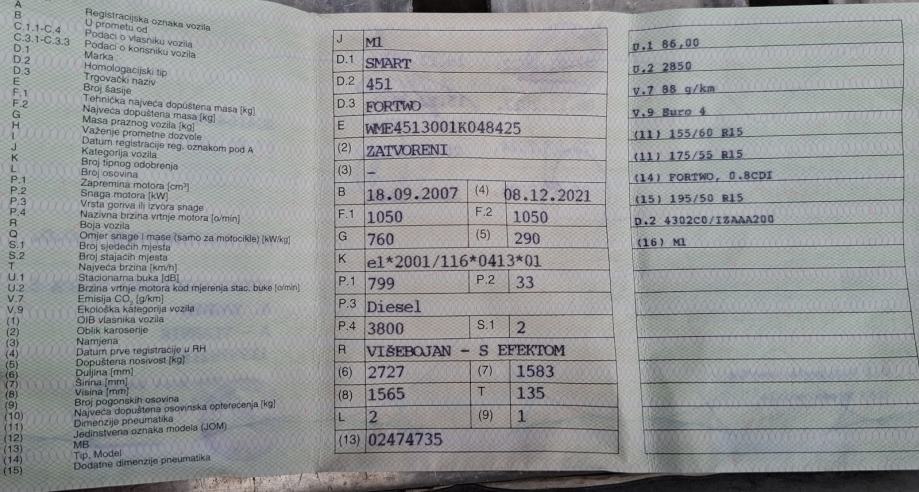 A
B Registracijska oznaka vozila
C.1.1-C.4 U prometu od
C.3.1-C.3.3 Podaci o vlasniku vozila
D.1 Podaci o korisniku vozila
D.2 Marka
D.3 Homologacijski tip
E Trgovački naziv
F.1 Broj šasije
F.2 Tehnička najveća dopuštena masa [kg]
G Najveća dopuštena masa [kg]
H Masa praznog vozila [kg]
I Važenje prometne dozvole
J Datum registracije reg. oznakom pod A
K Kategorija vozila
L Broj tipnog odobrenja
P.1 Broj osovina
P.2 Zapremina motora [cm³]
P.3 Snaga motora [kW]
P.4 Vrsta goriva ili izvora snage
R Nazivna brzina vrtnje motora [o/min]
Q Boja vozila
S.1 Omjer snage i mase (samo za motocikle) [kW/kg]
S.2 Broj sjedećih mjesta
T Broj stajaćih mjesta
U.1 Najveća brzina [km/h]
U.2 Stacionarna buka [dB]
V.7 Brzina vrtnje motora kod mjerenja stac. buke [o/min]
V.9 Emisija CO₂ [g/km]
(1) Ekološka kategorija vozila
(2) OIB vlasnika vozila
(3) Oblik karoserije
(4) Namjena
(5) Datum prve registracije u RH
(6) Dopuštena nosivost [kg]
(7) Duljina [mm]
(8) Širina [mm]
(9) Visina [mm]
(10) Broj pogonskih osovina
(11) Najveća dopuštena osovinska opterećenja [kg]
(12) Dimenzije pneumatika
(13) Jedinstvena oznaka modela (JOM)
(14) MB
(15) Tip, Model
Dodatne dimenzije pneumatika
J M1
D.1 SMART
D.2 451
D.3 FORTWO
E WME4513001K048425
(2) ZATVORENI
(3) –
B 18.09.2007 (4) 08.12.2021
F.1 1050 F.2 1050
G 760 (5) 290
K e1*2001/116*0413*01
P.1 799 P.2 33
P.3 Diesel
P.4 3800 S.1 2
R VIŠEBOJAN - S EFEKTOM
(6) 2727 (7) 1583
(8) 1565 T 135
L 2 (9) 1
(13) 02474735
U.1 86,00
U.2 2850
V.7 88 g/km
V.9 Euro 4
(11) 155/60 R15
(11) 175/55 R15
(14) FORTWO, 0.8CDI
(15) 195/50 R15
D.2 4302C0/IZAAA200
(16) M1